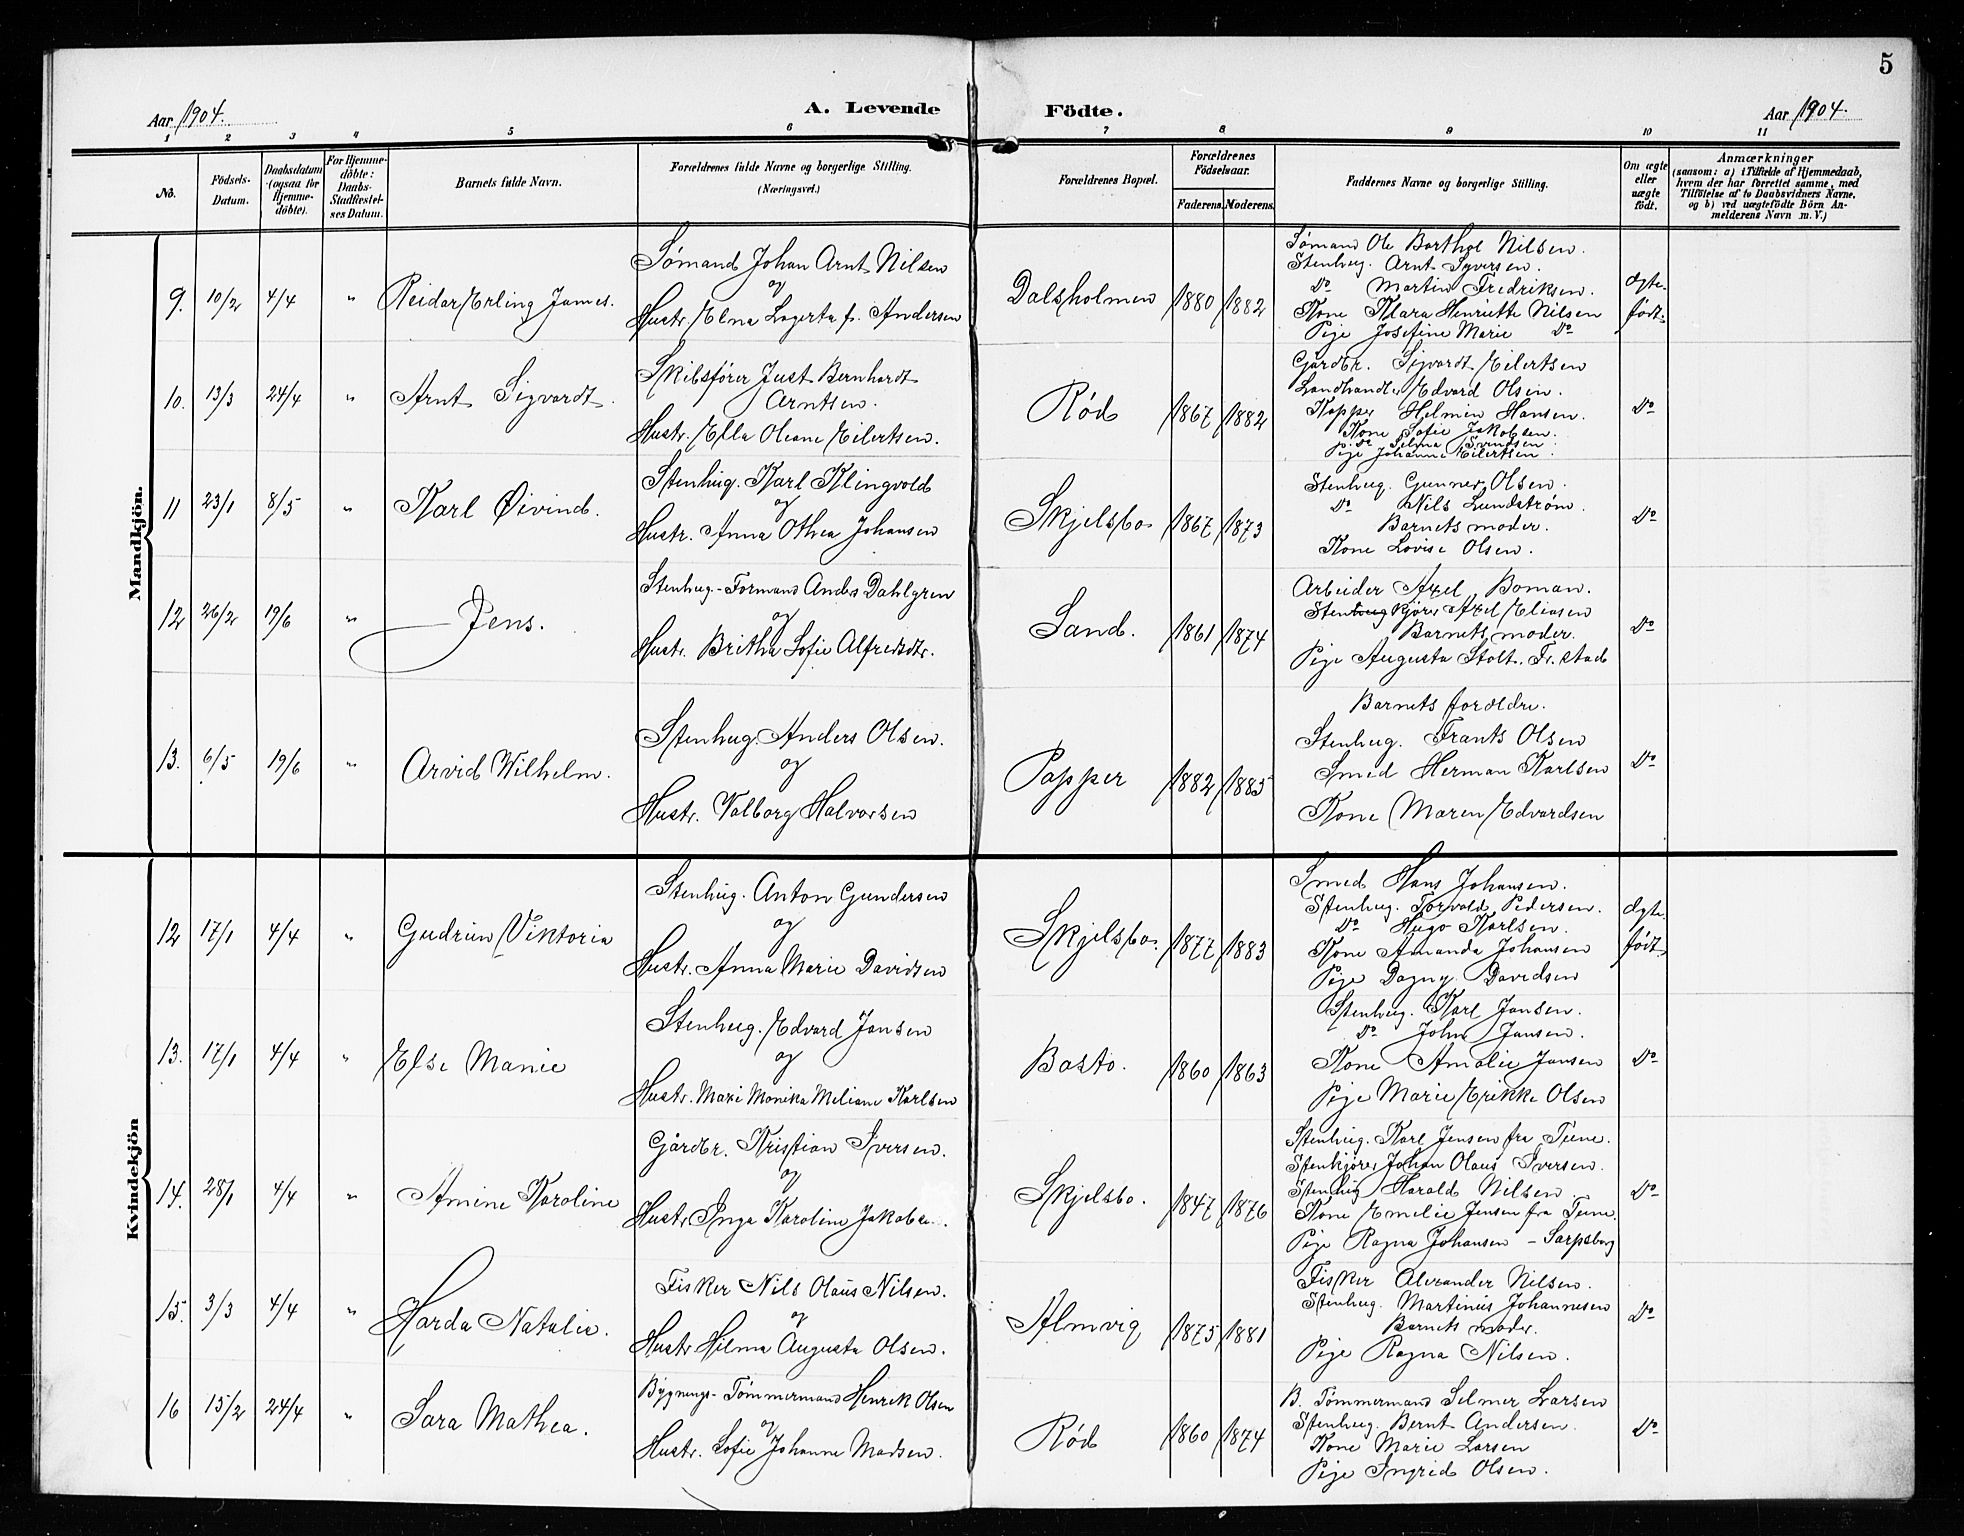 5
Aar 1904.
A. Levende
Födte.
Aar 1904.
1 2 3 4 5 6 7 8 9 10 11
No.
Födsels-
Datum.
Daabsdatum
(ogsaa for
Hjemme-
döbte).
For Hjemme-
döbte:
Daabs-
Stadfæstel-
ses Datum.
Barnets fulde Navn.
Forældrenes fulde Navne og borgerlige Stilling.
(Næringsvei.)
Forældrenes Bopæl.
Forældrenes
Födselsaar.
Faderens. Moderens.
Faddernes Navne og borgerlige Stilling.
Om ægte
eller
uægte
födt.
Anmærkninger
(saasom: a) i Tilfælde af Hjemmedaab,
hvem der har forrettet samme, med
Tilföielse af to Daabsvidners Navne,
og b) ved uægtefödte Börn An-
melderens Navn m. V.)
Mandkjön.
9. 10/2 4/4 " Reidar Erling James.
Sømand Johan Arnt Nilsen
og
Hustr. Elna Lagerta f. Andersen
Dalsholmen 1880 1882
Sømand Ole Barthol Nilsen.
Stenhug. Arnt Syversen.
Do Martin Fredriksen.
Kone Klara Henriette Nilsen
Pige Josefine Marie Do
Ægte-
født.
10. 13/3 24/4 " Arnt Sigvardt.
Skibsfører Just Bernhardt
Arntsen.
Hustr. Ella Oleane Eilertsen.
Rød 1867 1882
Gårdbr. Sigvardt Eilertsen
Landhandler Edvard Olsen.
Kopper Helmin Hansen.
Kone Sofie Jakobsen.
Do Selma Svendsen
Pige Johanne Eilertsen.
Do
11 23/1 8/5 " Karl Øivind.
Stenhug. Karl Klingvold
og
Hustr. Anna Othea Johansen
Skjelsbo 1867 1873
Stenhug. Gunner Olsen.
Do Nils Lundstrøm.
Barnets moder.
Kone Lovise Olsen.
Do
12 26/2 19/6 " Jens.
Stenhug.-Formand Anders Dahlgren
og
Hustr. Britha Sofie Alfredsdtr.
Sand. 1861 1874
Arbeider Axel Boman.
Stenhug kjører Axel Eliasen
Barnets moder.
Pige Augusta Stolt. Fr.stad
Do
13. 6/5 19/6 " Arvid Wilhelm.
Stenhug. Anders Olsen.
og
Hustr. Valborg Halvorsen
Papper 1882 1885
Barnets forældre.
Stenhug. Frants Olsen
Smed Herman Karlsen
Kone Maren Edvardsen
Do
Kvindekjön
12 17/1 4/4 " Gudrun Viktoria
Stenhug. Anton Gundersen
og
Hustr. Anna Marie Davidsen
Skjelsbo. 1877 1883
Smed Hans Johansen.
Stenhug. Torvald Pedersen.
Do Hugo Karlsen.
Kone Amanda Johansen
Pige Dagny Davidsen
Ægte-
født.
13. 17/1 4/4 " Else Marie
Stenhug. Edvard Jansen
og
Hustr. Maxi Monika Meliane Karlsen
Basto. 1860 1863
Stenhug. Karl Jansen.
Do John Jansen.
Kone Amalie Jansen
Pige Marie Erikke Olsen
Do
14. 28/1 4/4 " Amine Karoline
Gårdbr. Kristian Iversen.
og
Hustr. Inga Karoline Jakobse.
Skjelsbo. 1847 1876
Stenhug. Karl Jensen fra Tune.
Stenkjører Johan Olaus Iversen.
Stenhug Harald Nilsen
Kone Emelie Jensen fra Tune.
Pige Ragna Johansen – Sarpsborg
Do
15. 3/3 4/4 " Harda Natalie.
Fisker Nils Olaus Nilsen.
og
Hustr Hilma Augusta Olsen.
Almvig 1875 1881
Fisker Alexander Nilsen.
Stenhug. Martinus Johannesen
Barnets moder.
Pige Ragna Nilsen.
Do
16 15/2 24/4 " Sara Mathea.
Bygnings-Tømmermand Henrik Olsen
og
Hustr. Sofie Johanne Madsen.
Rød 1860 1874
B. Tømmermand Selmer Larsen
Stenhug. Bernt Andersen.
Kone Marie Larsen
Pige Ingrid Olsen.
Do